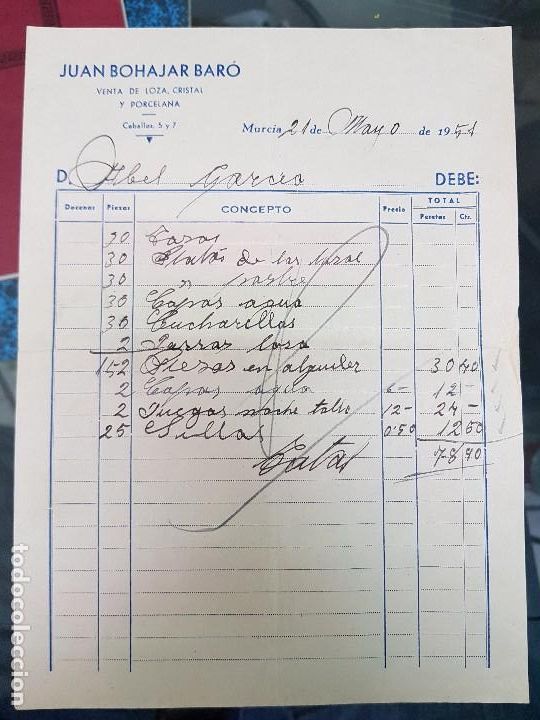 JUAN BOHAJAR BARÓ
VENTA DE LOZA, CRISTAL
Y PORCELANA
Caballos, 5 y 7
Murcia, 21 de Mayo de 1951
D. Abel Garcia DEBE:
Docenas Piezas CONCEPTO Precio TOTAL
Pesetas Cts.
30 Tazas
30 Platos de las
30 " postre
30 Copas agua
30 Cucharillas
2 Jarras loza
152 Piezas en alquiler 30 40
2 Copas agua 6- 12 -
2 Juegos noche 12- 24 -
25 Sillas 0.50 12 50
78 90
todocoleccion